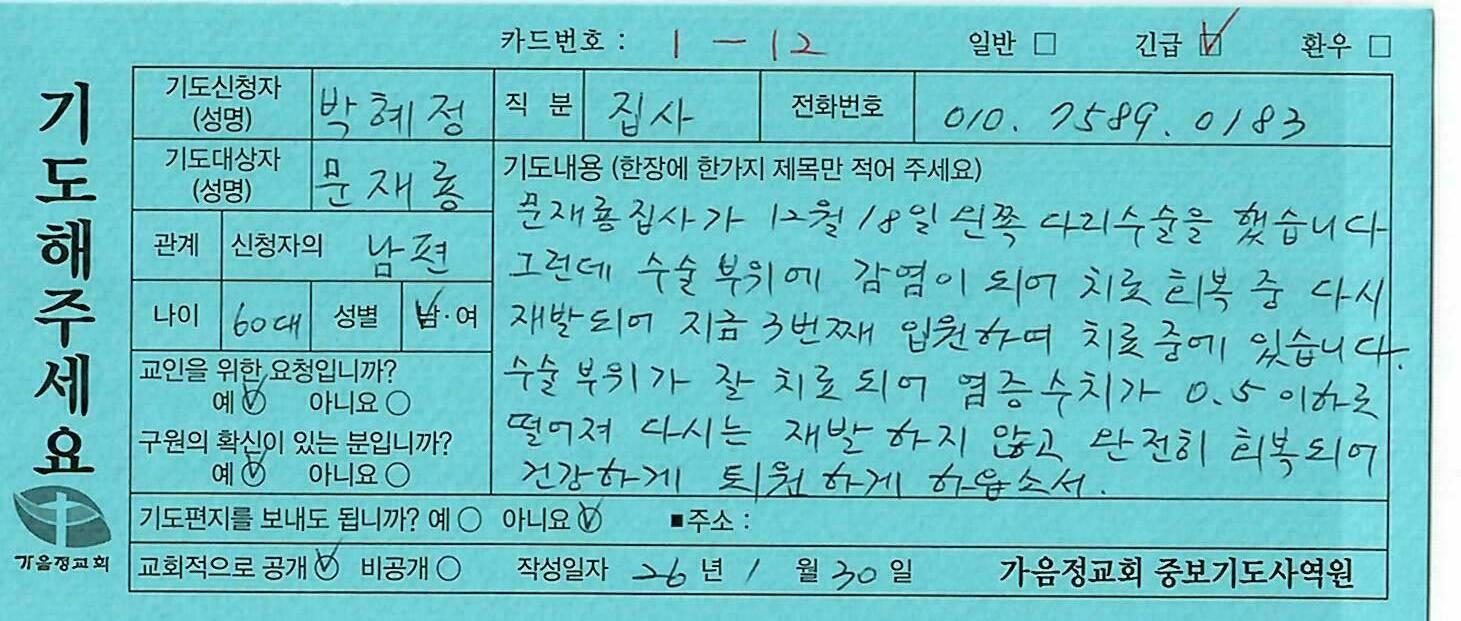 카드번호 : 1 - 12 일반 □ 긴급 ☑ 환우 □
기도해주세요
기도신청자 (성명) 박혜정 직 분 집사 전화번호 010. 7589. 0183
기도대상자 (성명) 문재룡
관계 신청자의 남편
나이 60대 성별 남·여
교인을 위한 요청입니까?
예 ☑ 아니요 ○
구원의 확신이 있는 분입니까?
예 ☑ 아니요 ○
기도내용 (한장에 한가지 제목만 적어 주세요)
문재룡집사가 12월 18일 왼쪽 다리수술을 했습니다
그런데 수술 부위에 감염이 되어 치료 회복 중 다시
재발되어 지금 3번째 입원하여 치료 중에 있습니다.
수술 부위가 잘 치료되어 염증수치가 0.5 이하로
떨어져 다시는 재발 하지 않고 완전히 회복되어
건강하게 퇴원하게 하옵소서.
가음정교회
기도편지를 보내도 됩니까? 예 ○ 아니요 ☑ ■주소 :
교회적으로 공개 ☑ 비공개 ○ 작성일자 26 년 1 월 30 일 가음정교회 중보기도사역원